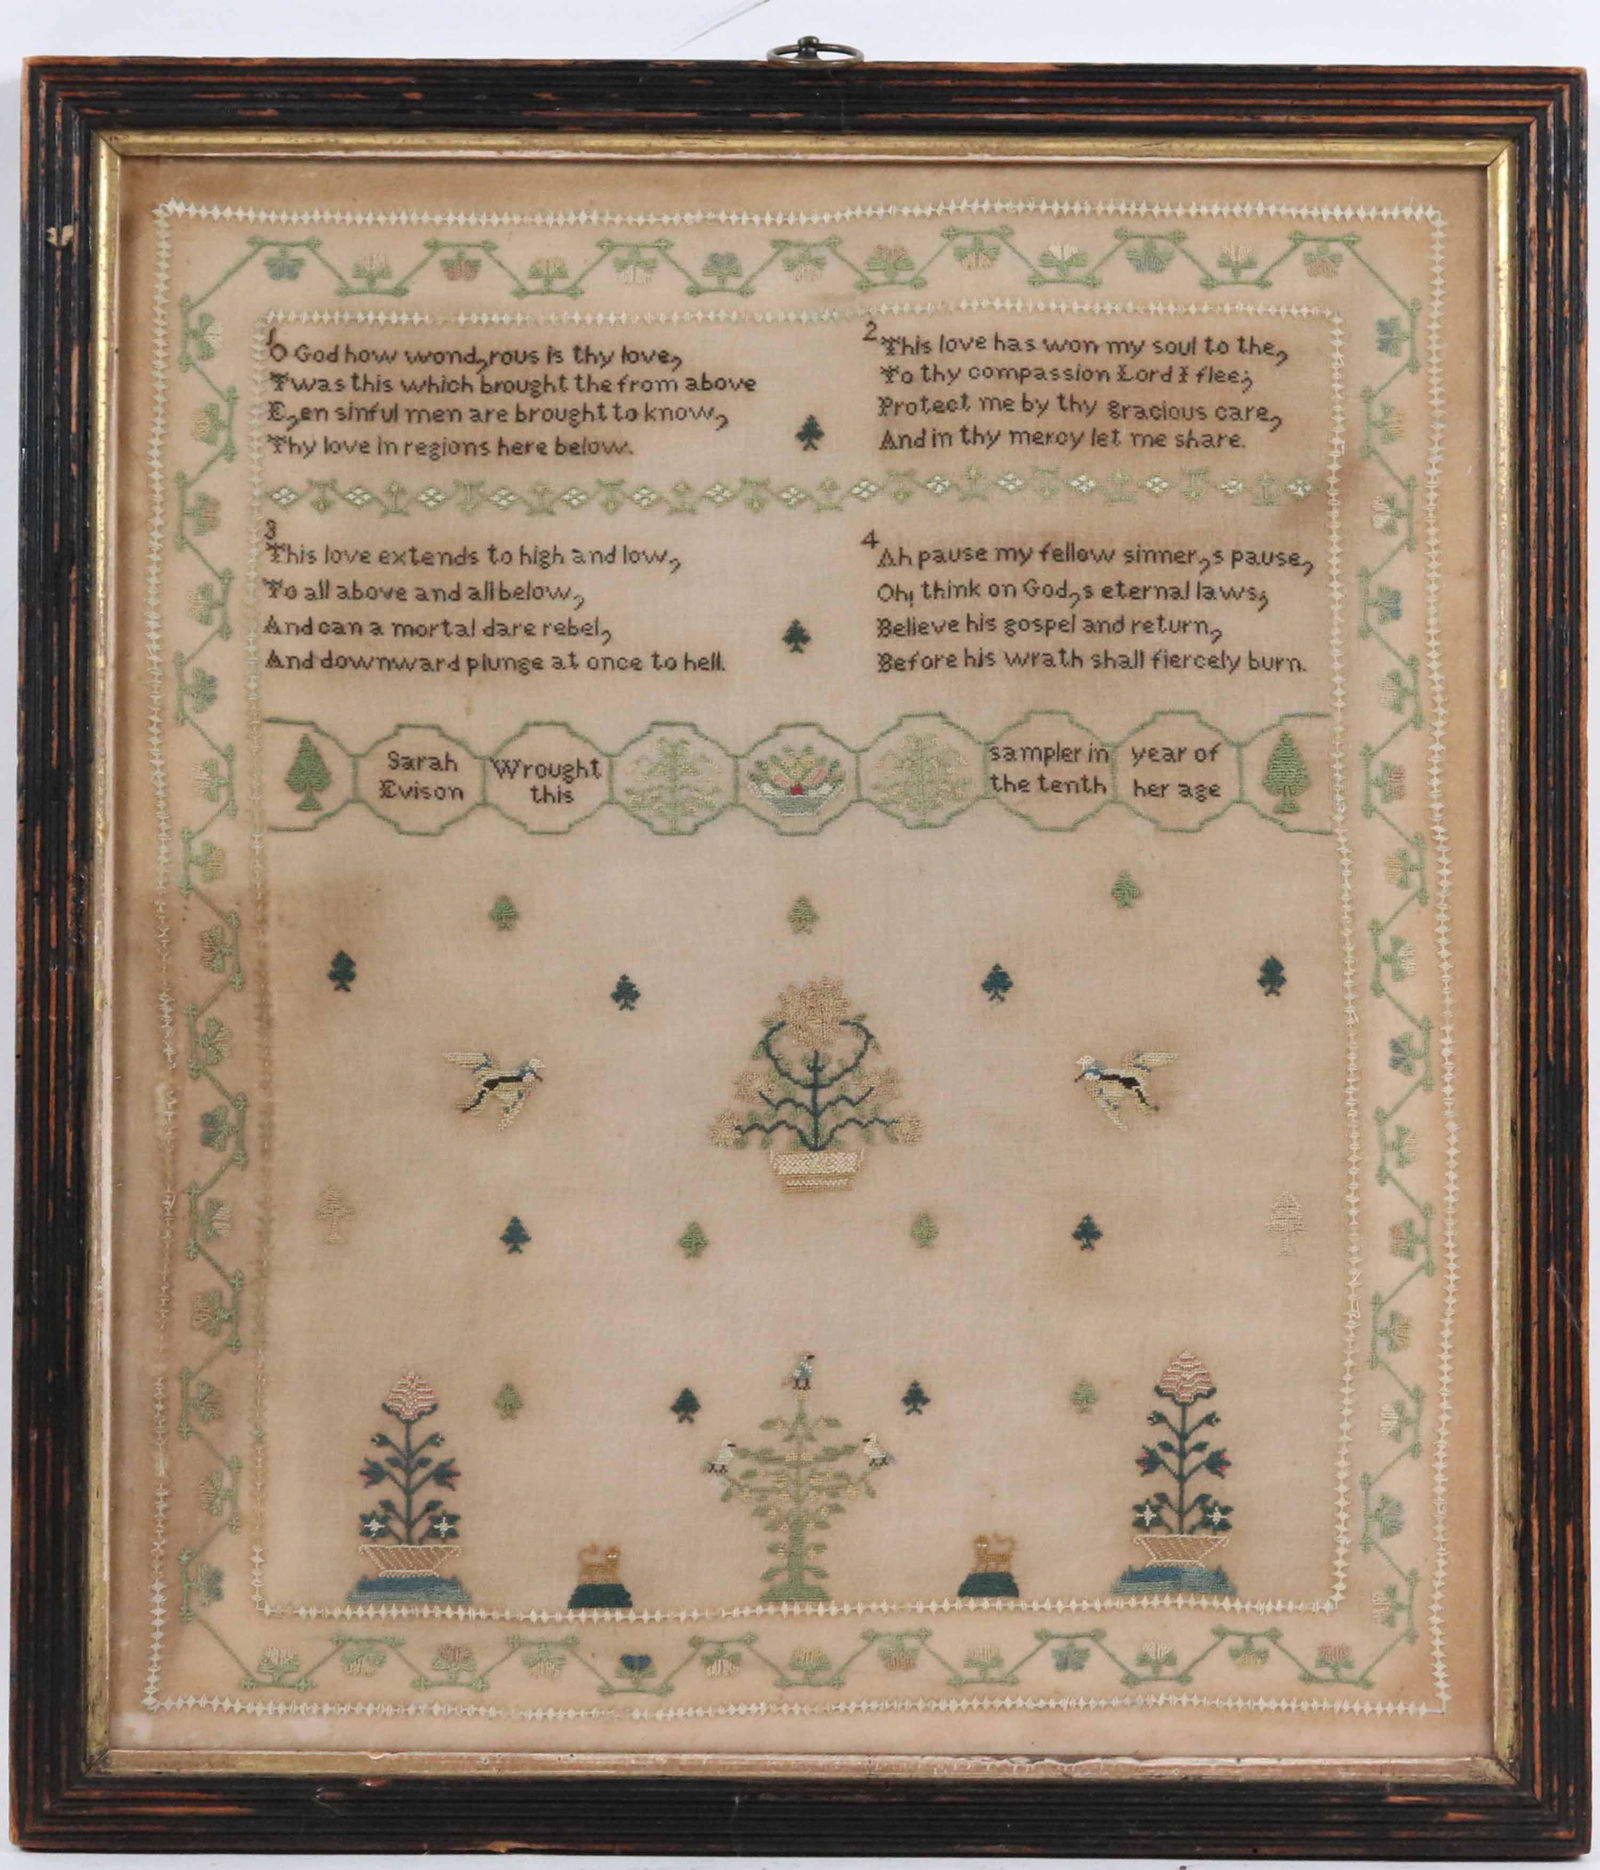 1
O God how wond,rous is thy love,
Twas this which brought the from above
E,en sinful men are brought to know,
Thy love in regions here below.
2
This love has won my soul to the,
To thy compassion Lord I flee;
Protect me by thy gracious care,
And in thy mercy let me share.
3
This love extends to high and low,
To all above and all below,
And can a mortal dare rebel,
And downward plunge at once to hell.
4
Ah pause my fellow sinner,s pause,
Oh! think on God,s eternal laws;
Believe his gospel and return,
Before his wrath shall fiercely burn.
Sarah
Evison
Wrought
this
sampler in
the tenth
year of
her age